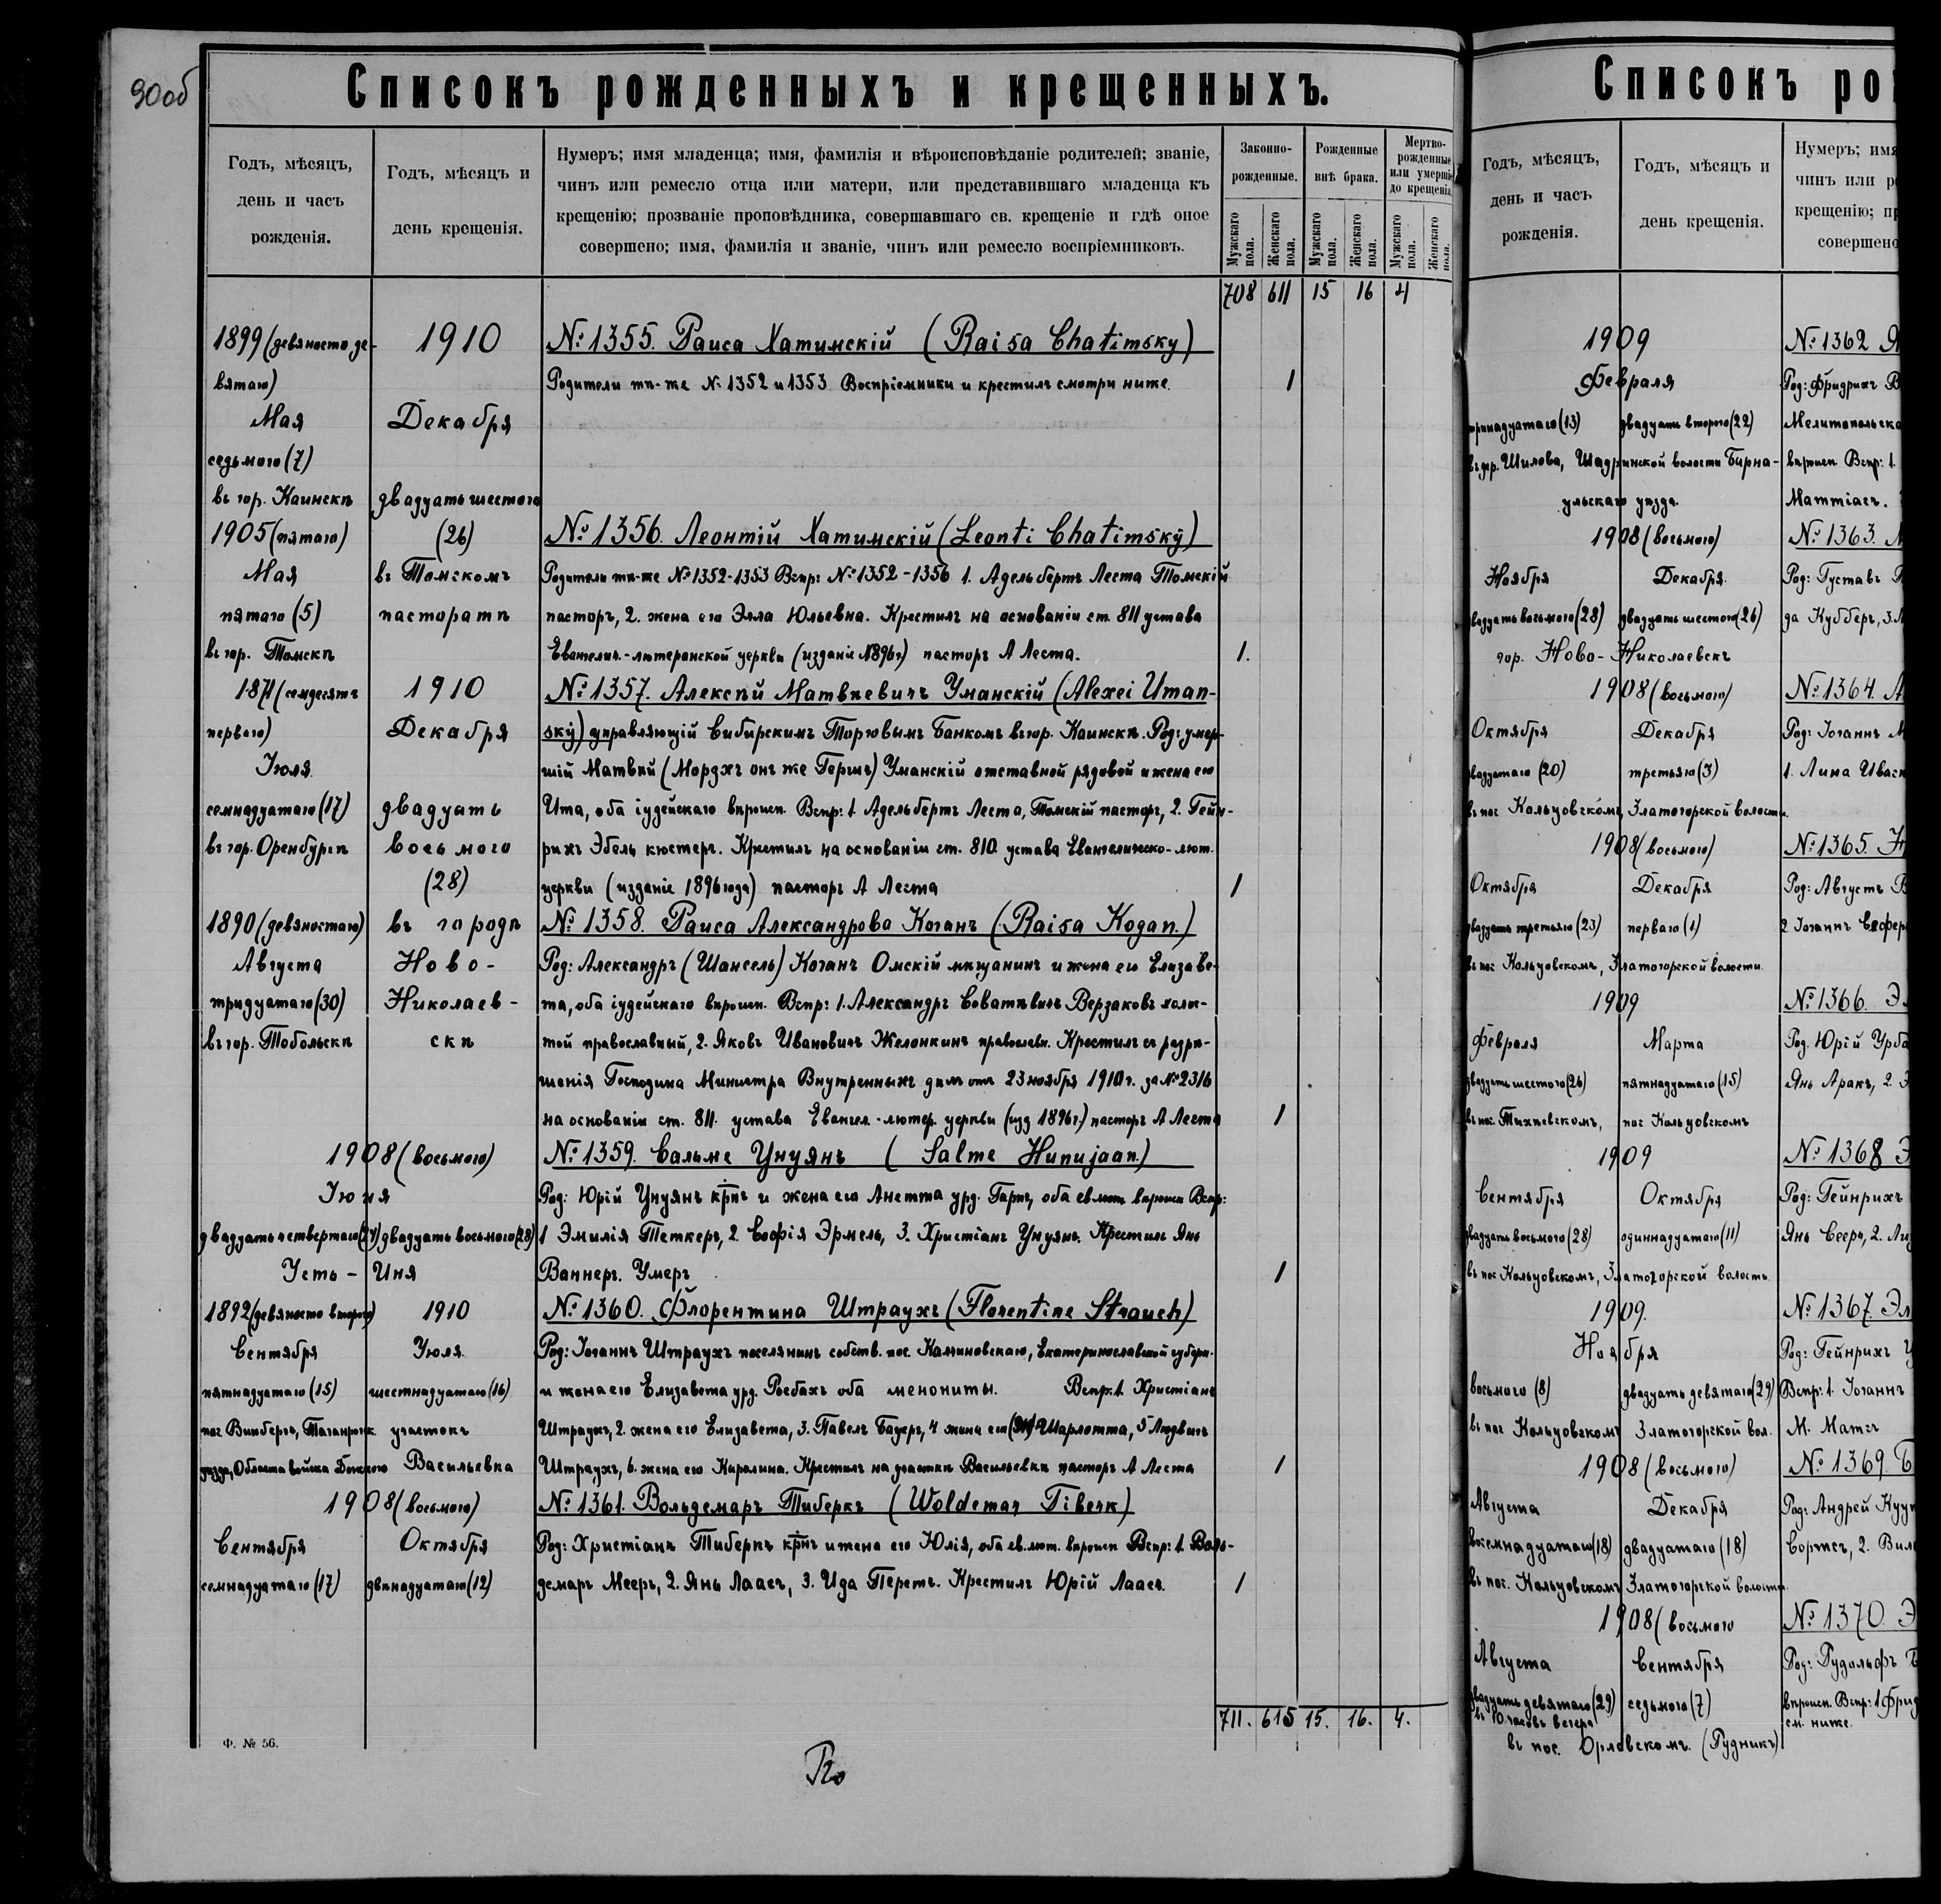 90об
Списокъ рожденныхъ и крещенныхъ.
Годъ, мѣсяцъ,
день и часъ
рожденія.
Годъ, мѣсяцъ и
день крещенія.
Нумеръ; имя младенца; имя, фамилія и вѣроисповѣданіе родителей; званіе,
чинъ или ремесло отца или матери, или представившаго младенца къ
крещенію; прозваніе проповѣдника, совершавшаго св. крещеніе и гдѣ оное
совершено; имя, фамилія и званіе, чинъ или ремесло воспріемниковъ.
Законно-
рожденные.
Рожденные
внѣ брака.
Мертво-
рожденные
или умершіе
до крещенія.
Мужскаго пола.
Женскаго пола.
Мужскаго пола.
Женскаго пола.
Мужскаго пола.
Женскаго пола.
708 611 15 16 4
1899 (девяносто де- 1910 №1355. Раиса Хатимскій (Raisa Chatimsky)
вятаго) Родители тѣ-же №1352 и 1353 Воспріемники и крестилъ смотри ниже. 1
Мая Декабря
седьмого (7)
въ гор. Каинскѣ двадцать шестого
1905 (пятаго) (26) №1356. Леонтій Хатимскій (Leonti Chatimsky)
Мая въ Томскомъ Родители тѣ-же №1352-1353 Вспр: №1352-1356 1. Адельбертъ Леста Томскій
пятаго (5) пасторатѣ пасторъ, 2. жена его Элла Юльевна. Крестилъ на основаніи ст. 811 устава
въ гор. Томскѣ Евангелич.-лютеранской церкви (изданіе 1896г) пасторъ А Леста. 1.
1871 (семдесятъ 1910 №1357. Алексѣй Матвѣевичъ Уманскій (Alexei Uman-
перваго) Декабря sky) управляющій Сибирскимъ Торговымъ Банкомъ въ гор. Каинскѣ. Род: умер-
Іюля шій Матвѣй (Мордхъ онъ же Гершъ) Уманскій отставной рядовой и жена его
семнадцатаго (17) двадцать Ита, оба іудейскаго вѣроисп. Вспр: 1. Адельбертъ Леста, Томскій пасторъ, 2. Гейн-
въ гор. Оренбургѣ восьмого рихъ Эбель кюстеръ. Крестилъ на основаніи ст. 810. устава Евангелическо-лют.
(28) церкви (изданіе 1896 года) пасторъ А Леста 1
1890 (девяностаго) въ городѣ №1358. Раиса Александрова Коганъ (Raisa Kogan.)
Августа Ново- Род: Александръ (Шансель) Коганъ Омскій мѣщанинъ и жена его Елизаве-
тридцатаго (30) Николаев- та, оба іудейскаго вѣроисп. Вспр: 1. Александръ Верзаковъ холос-
въ гор. Тобольскѣ скѣ той православный, 2. Яковъ Ивановичъ Желонкинъ православн. Крестилъ съ разрѣ-
шенія Господина Министра Внутреннихъ дѣлъ отъ 23 ноября 1910 г. за №2316
на основаніи ст. 811. устава Евангел.-лютер. церкви (изд 1896г.) пасторъ А Леста 1
1908 (восьмого) №1359. Сальме Унуянъ (Salme Hunujaan.)
Іюня Род: Юрій Унуянъ крнъ и жена его Анетта урд. Гаръ, оба ев лют вѣроисп Вспр:
двадцать четвертаго (24) двадцать восьмого (28) 1 Эмилія Теткеръ, 2. Софія Эрмель, 3. Христіанъ Унуянъ. Крестилъ Янъ
Усть-Иня Ваннеръ. Умеръ 1
1892 (девяносто второго) 1910 №1360. Флорентина Штраухъ (Florentine Strauch)
Сентября Іюля Род: Іоганнъ Штраухъ поселянинъ собств. пос. Калиновскаго, Екатеринославской губерн.
пятнадцатаго (15) шестнадцатаго (16) и жена его Елизавета урд. Ребахъ оба менониты. Вспр: 1. Христіанъ
пос Винбергъ, Таганрогск участокъ Штраухъ, 2. жена его Елизавета, 3. Павелъ Бауеръ, 4 жена его Шарлотта, 5 Людвигъ
уезда, Области войска Донского Васильевка Штраухъ, 6. жена его Каролина. Крестилъ на участкѣ Васильевкѣ пасторъ А Леста 1
1908 (восьмого) №1361. Вольдемаръ Тиберкъ (Woldemar Tiberk)
Сентября Октября Род: Христіанъ Тиберкъ крнъ и жена его Юлія, оба ев. лют. вѣроисп Вспр: 1. Воль-
семнадцатаго (17) двѣнадцатаго (12) демаръ Мееръ, 2. Янъ Лаасъ, 3. Ида Перетъ. Крестилъ Юрій Лаасъ. 1
711. 615 15. 16. 4.
Ф. № 56.
Списокъ ро
Годъ, мѣсяцъ,
день и часъ
рожденія.
Годъ, мѣсяцъ и
день крещенія.
Нумеръ; имя
чинъ или р
крещенію; п
совершено
1909 №1362 Я
Февраля Род: Фридрихъ В
тринадцатаго (13) двадцать второго (22) Мелитопольска
въ дер. Шилова, Шадринской волости Барна- вѣроисп Вспр: 1.
ульскаго уезда. Маттіасъ.
1908 (восьмого) №1363.
Ноября Декабря Род: Густавъ
двадцать восьмого (28) двадцать шестого (26) да Кубберъ, 3.
гор. Ново-Николаевскъ
1908 (восьмого) №1364. А
Октября Декабря Род: Іоганнъ М
двадцатаго (20) третьяго (3) 1. Лина Иваск
въ пос Кольцовскомъ, Златогорской волости.
1908 (восьмого) №1365.
Октября Декабря Род: Августъ В
двадцать третьяго (23) перваго (1) 2 Іоганнъ
въ пос Кольцовскомъ, Златогорской волости.
1909 №1366. Э
Февраля Марта Род. Юрій Урба
двадцать шестого (26) пятнадцатаго (15) Янъ Аракъ, 2.
въ пос. Тихневскомъ, пос Кольцовскомъ
1909 №1368 Э
Сентября Октября Род: Гейнрихъ
двадцать восьмого (28) одиннадцатаго (11) Янъ Сееръ, 2.
въ пос Кольцовскомъ, Златогорской волость
1909. №1367. Эл
Ноября Род: Гейнрихъ
восьмого (8) двадцать девятаго (29) Вспр: 1. Іоганнъ
въ пос Кольцовскомъ Златогорской вол. М. Матсъ
1908 (восьмого) №1369. Б
Августа Декабря Род: Андрей Куу
восемнадцатаго (18) двадцатаго (18) Сортсъ, 2. Вил
въ пос. Кольцовскомъ Златогорской волости.
1908 (восьмого №1370. Э
Августа Сентября Род: Рудольфъ
двадцать девятаго (29) седьмого (7) вѣроисп. Вспр: 1 Фрид
въ 10 часовъ вечера см. ниже.
въ пос. Орловскомъ. (Рудникъ)